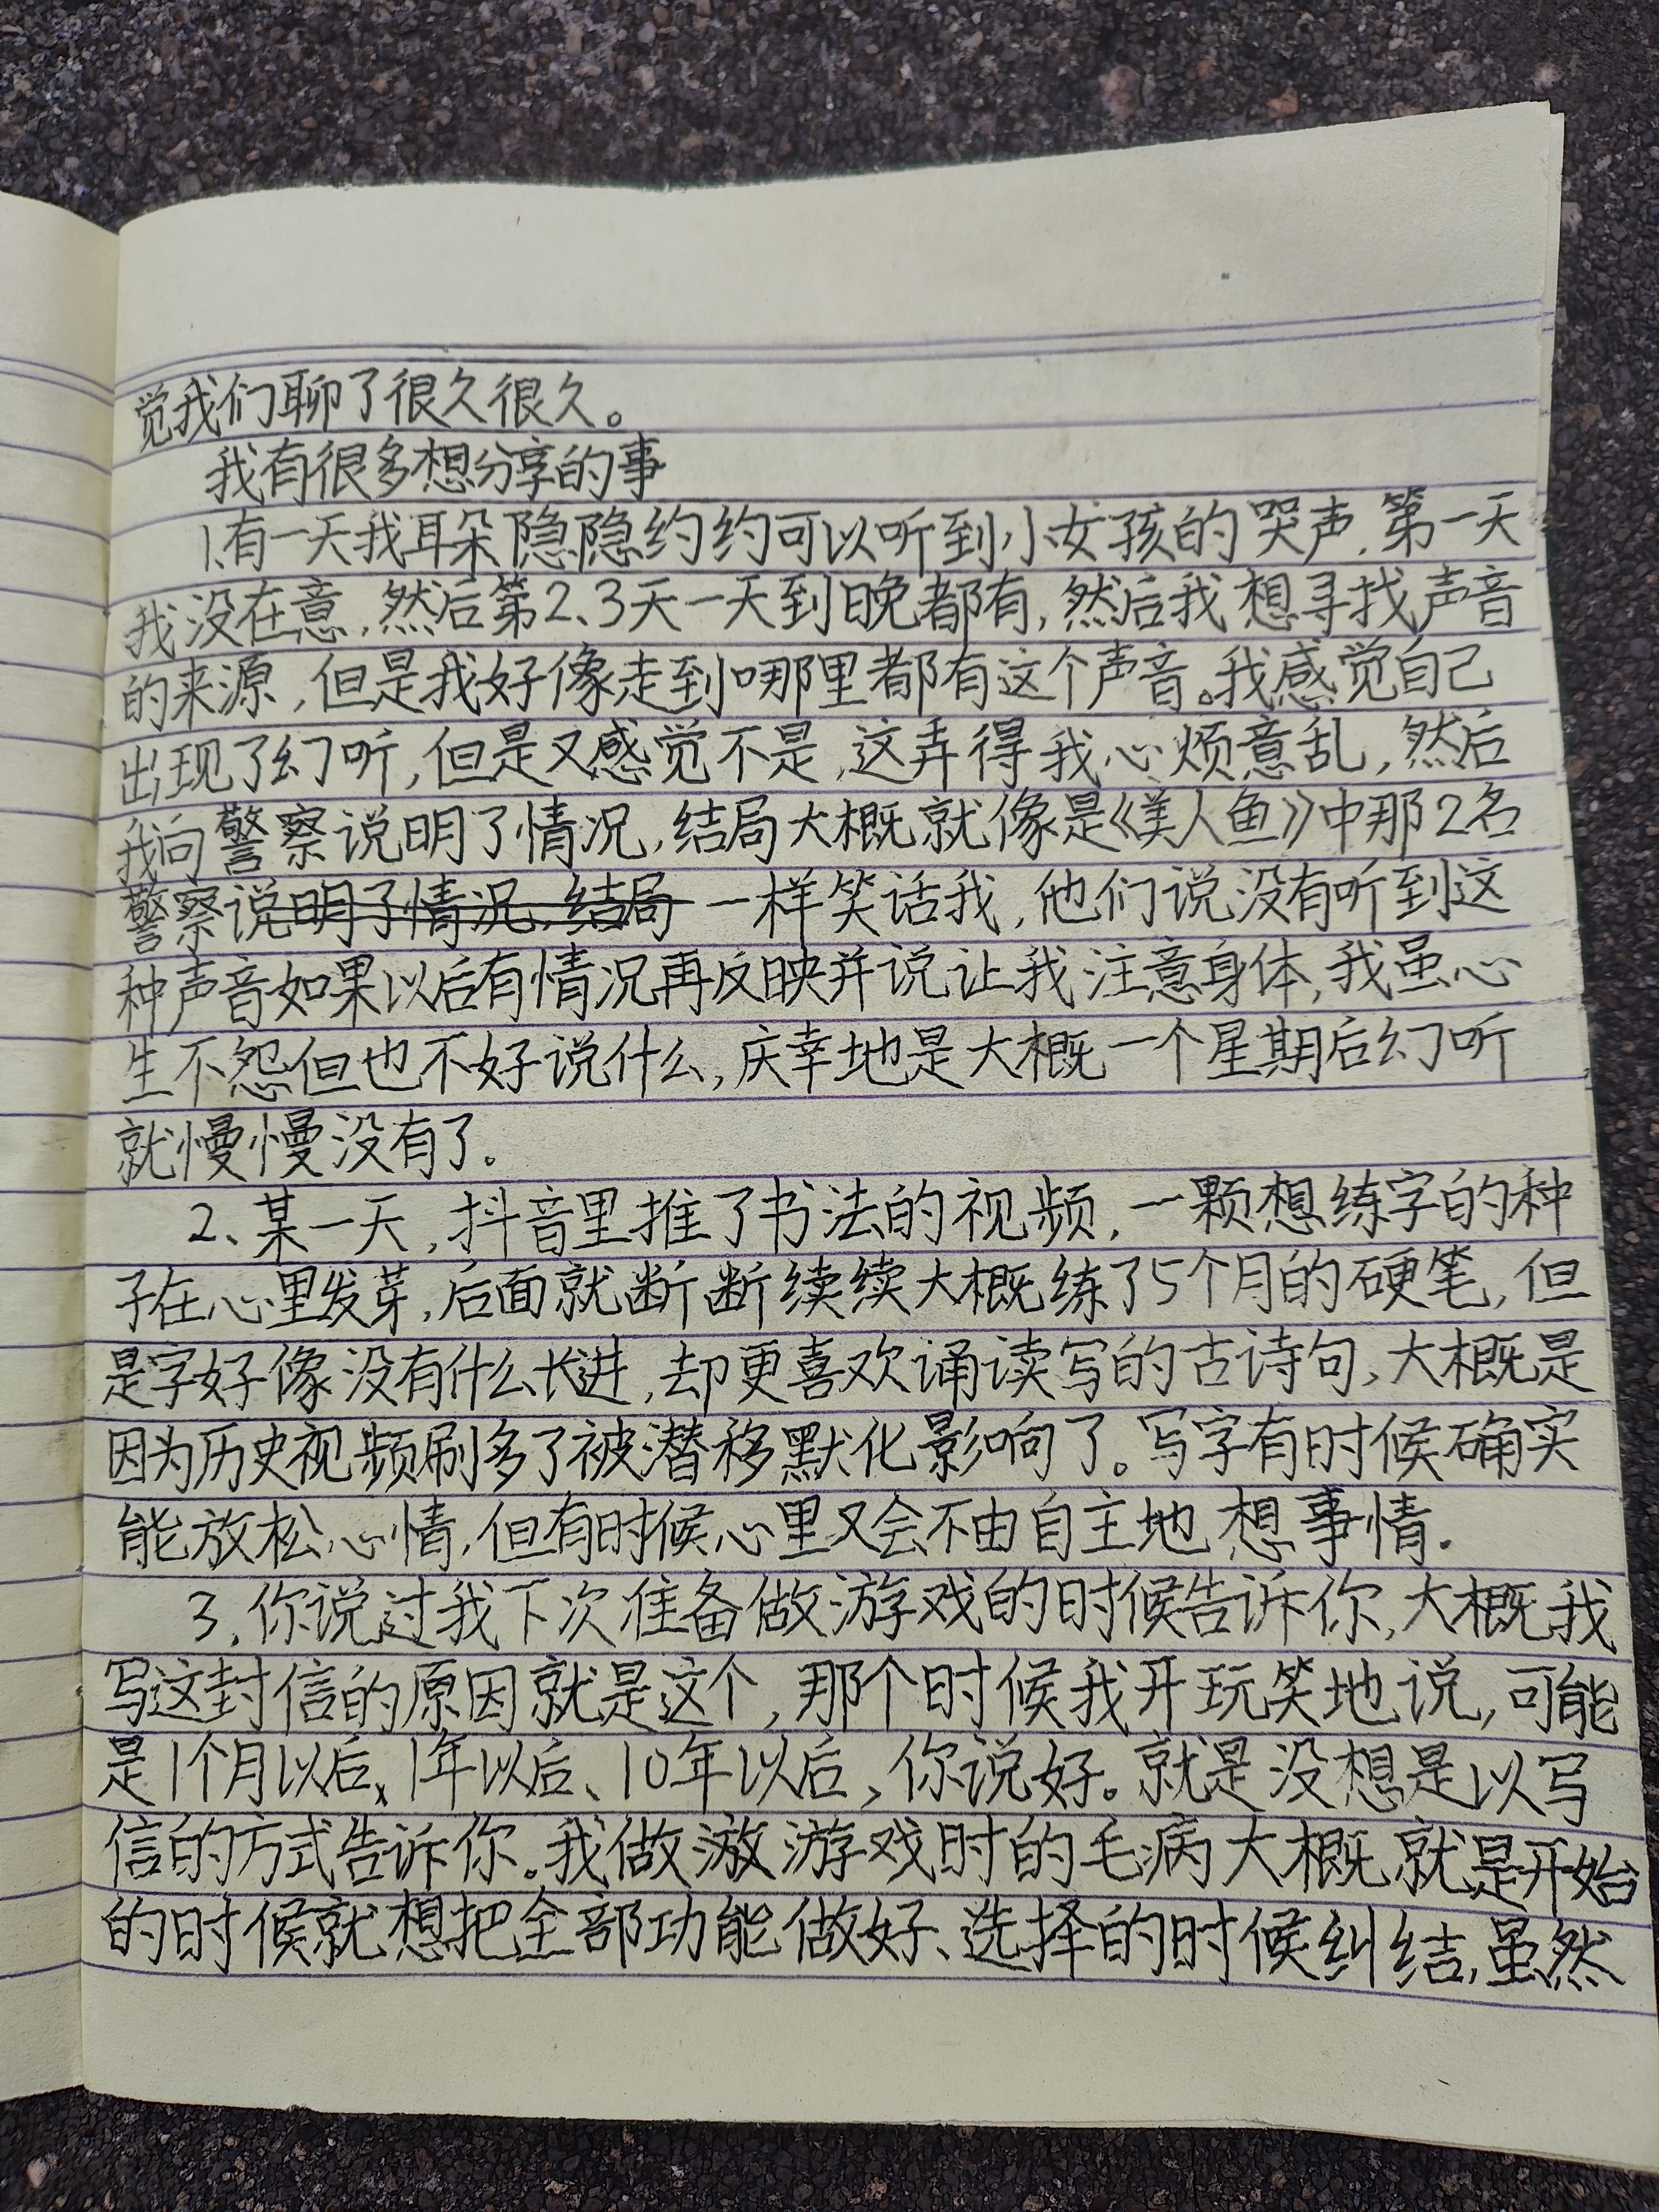 觉我们聊了很久很久。
我有很多想分享的事
1.有一天我耳朵隐隐约约可以听到小女孩的哭声.第一天
我没在意,然后第2、3天一天到晚都有,然后我想寻找声音
的来源,但是我好像走到哪里都有这个声音。我感觉自己
出现了幻听,但是又感觉不是,这弄得我心烦意乱,然后
我向警察说明了情况,结局大概就像是《美人鱼》中那2名
警察说明了情况,结局一样笑话我,他们说没有听到这
种声音如果以后有情况再反映并说让我注意身体,我虽心
生不怨但也不好说什么,庆幸地是大概一个星期后幻听
就慢慢没有了。
2、某一天,抖音里推了书法的视频,一颗想练字的种
子在心里发芽,后面就断断续续大概练了5个月的硬笔,但
是字好像没有什么长进,却更喜欢诵读写的古诗句,大概是
因为历史视频刷多了被潜移默化影响了。写字有时候确实
能放松心情,但有时候心里又会不由自主地想事情.
3.你说过我下次准备做游戏的时候告诉你,大概我
写这封信的原因就是这个,那个时候我开玩笑地说,可能
是1个月以后、1年以后、10年以后,你说好。就是没想是以写
信的方式告诉你。我做游戏时的毛病大概就是开始
的时候就想把全部功能做好、选择的时候纠结,虽然